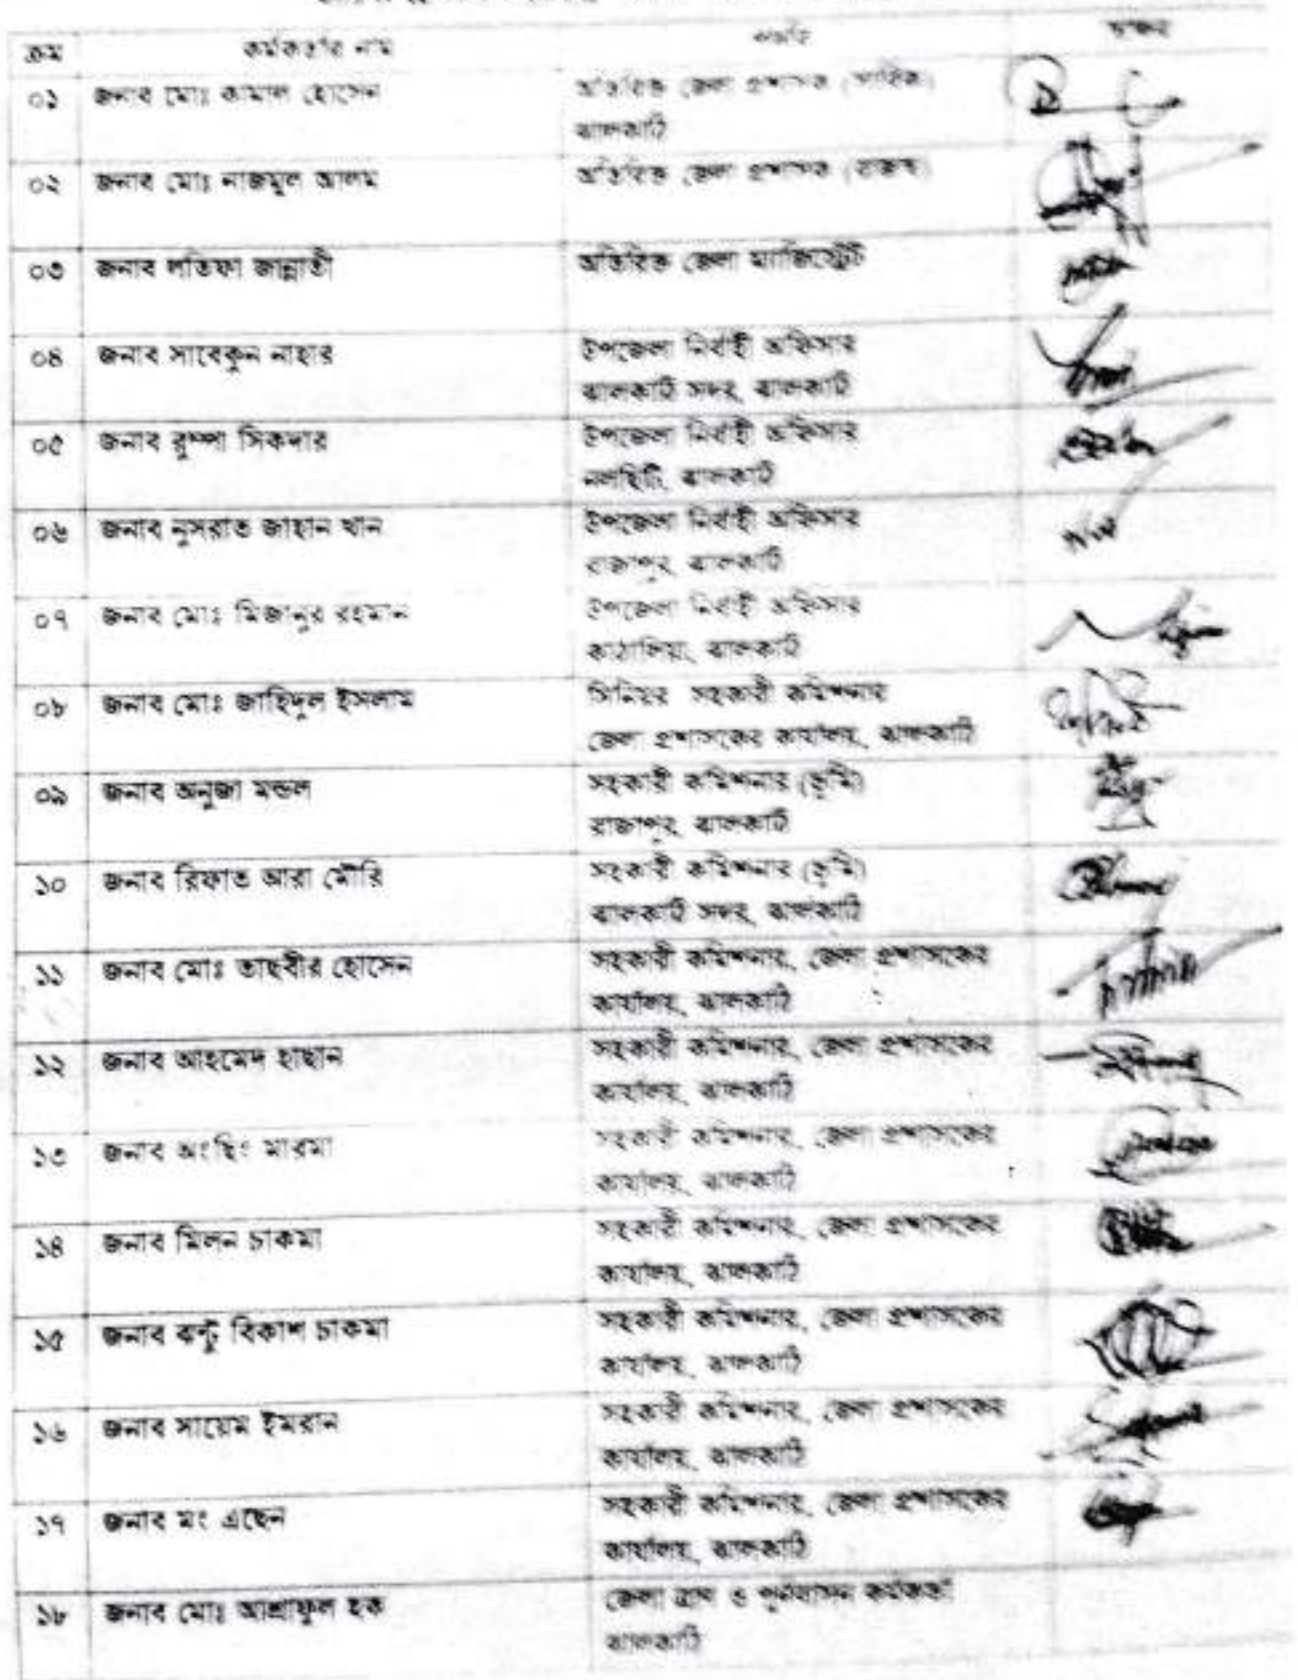 ক্রম কর্মকর্তার নাম পদবি স্বাক্ষর
০১ জনাব মোঃ কামাল হোসেন অতিরিক্ত জেলা প্রশাসক (সার্বিক)
ঝালকাঠি
০২ জনাব মোঃ নাজমুল আলম অতিরিক্ত জেলা প্রশাসক (রাজস্ব)
০৩ জনাব লতিফা জান্নাতী অতিরিক্ত জেলা ম্যাজিস্ট্রেট
০৪ জনাব সাবেকুন নাহার উপজেলা নির্বাহী অফিসার
ঝালকাঠি সদর, ঝালকাঠি
০৫ জনাব রুম্পা সিকদার উপজেলা নির্বাহী অফিসার
নলছিটি, ঝালকাঠি
০৬ জনাব নুসরাত জাহান খান উপজেলা নির্বাহী অফিসার
রাজাপুর, ঝালকাঠি
০৭ জনাব মোঃ মিজানুর রহমান উপজেলা নির্বাহী অফিসার
কাঠালিয়া, ঝালকাঠি
০৮ জনাব মোঃ জাহিদুল ইসলাম সিনিয়র সহকারী কমিশনার
জেলা প্রশাসকের কার্যালয়, ঝালকাঠি
০৯ জনাব অনুজা মন্ডল সহকারী কমিশনার (ভূমি)
রাজাপুর, ঝালকাঠি
১০ জনাব রিফাত আরা মৌরি সহকারী কমিশনার (ভূমি)
ঝালকাঠি সদর, ঝালকাঠি
১১ জনাব মোঃ তাছবীর হোসেন সহকারী কমিশনার, জেলা প্রশাসকের
কার্যালয়, ঝালকাঠি
১২ জনাব আহমেদ হাছান সহকারী কমিশনার, জেলা প্রশাসকের
কার্যালয়, ঝালকাঠি
১৩ জনাব অংছিং মারমা সহকারী কমিশনার, জেলা প্রশাসকের
কার্যালয়, ঝালকাঠি
১৪ জনাব মিলন চাকমা সহকারী কমিশনার, জেলা প্রশাসকের
কার্যালয়, ঝালকাঠি
১৫ জনাব ঝন্টু বিকাশ চাকমা সহকারী কমিশনার, জেলা প্রশাসকের
কার্যালয়, ঝালকাঠি
১৬ জনাব সায়েম ইমরান সহকারী কমিশনার, জেলা প্রশাসকের
কার্যালয়, ঝালকাঠি
১৭ জনাব মং এছেন সহকারী কমিশনার, জেলা প্রশাসকের
কার্যালয়, ঝালকাঠি
১৮ জনাব মোঃ আশ্রাফুল হক জেলা ত্রাণ ও পুনর্বাসন কর্মকর্তা
ঝালকাঠি